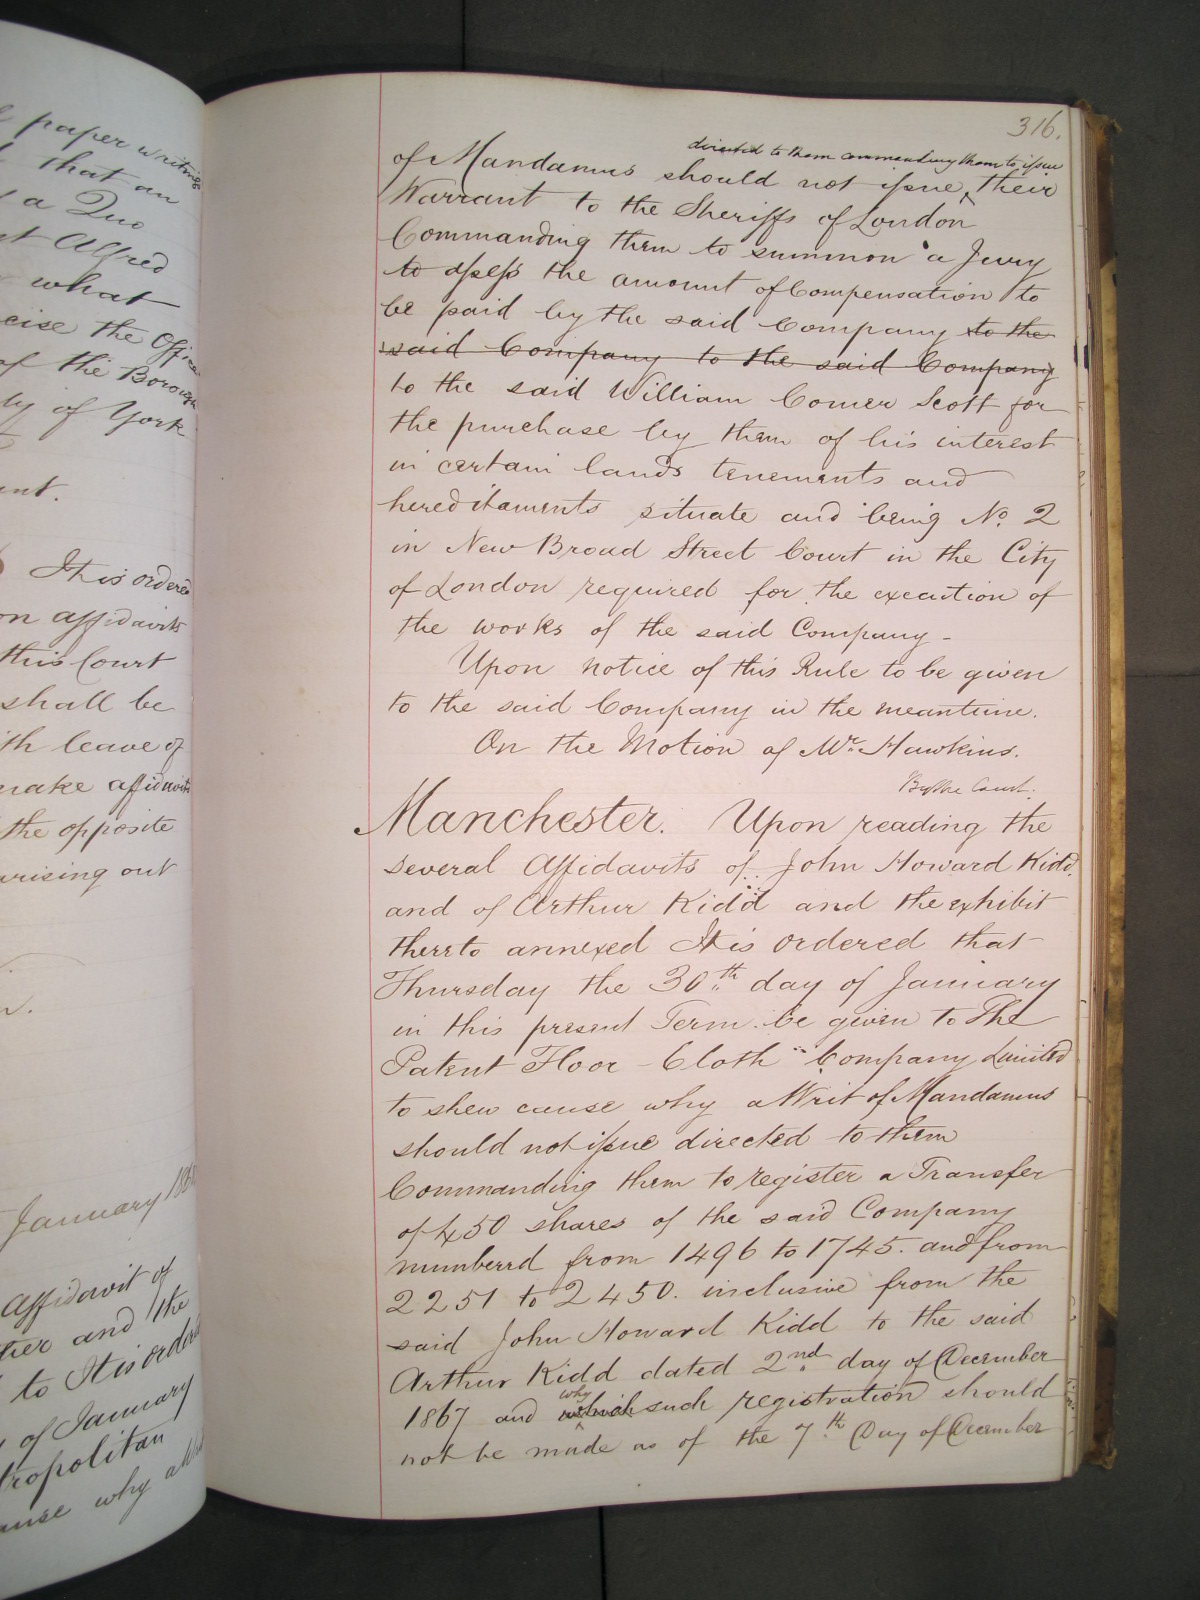 paper writings
that an
a Quo
Alfred
what
cise the Office
of the Borough
ty of York
ent.
It is ordered
on affidavits
this Court
shall be
ith leave of
make affidavits
the opposite
arising out
January
Affidavit of
her and the
to It is ordered
of January
tropolitan
ause why a
316.
directed to them commanding them to issue
of Mandamus should not issue ‸ their
Warrant to the Sheriffs of London
Commanding them to summon a Jury
to assess the amount of Compensation to
be paid by the said Company to the
said Company to the said Company
to the said William Comer Scott for
the purchase by them of his interest
in certain lands tenements and
hereditaments situate and being No. 2
in New Broad Street Court in the City
of London required for the execution of
the works of the said Company -
Upon notice of this Rule to be given
to the said Company in the meantime.
On the Motion of Mr. Hawkins.
By the Court.
Manchester. Upon reading the
several Affidavits of John Howard Kidd
and of Arthur Kidd and the exhibit
thereto annexed It is ordered that
Thursday the 30th day of January
in this present Term be given to The
Patent Floor-Cloth Company Limited
to shew cause why a Writ of Mandamus
should not issue directed to them
Commanding them to register a Transfer
of 450 shares of the said Company
numbered from 1496 to 1745. and from
2251 to 2450. inclusive from the
said John Howard Kidd to the said
Arthur Kidd dated 2nd day of December
why
1867 and which such registration should
not be made as of the 7th Day of December